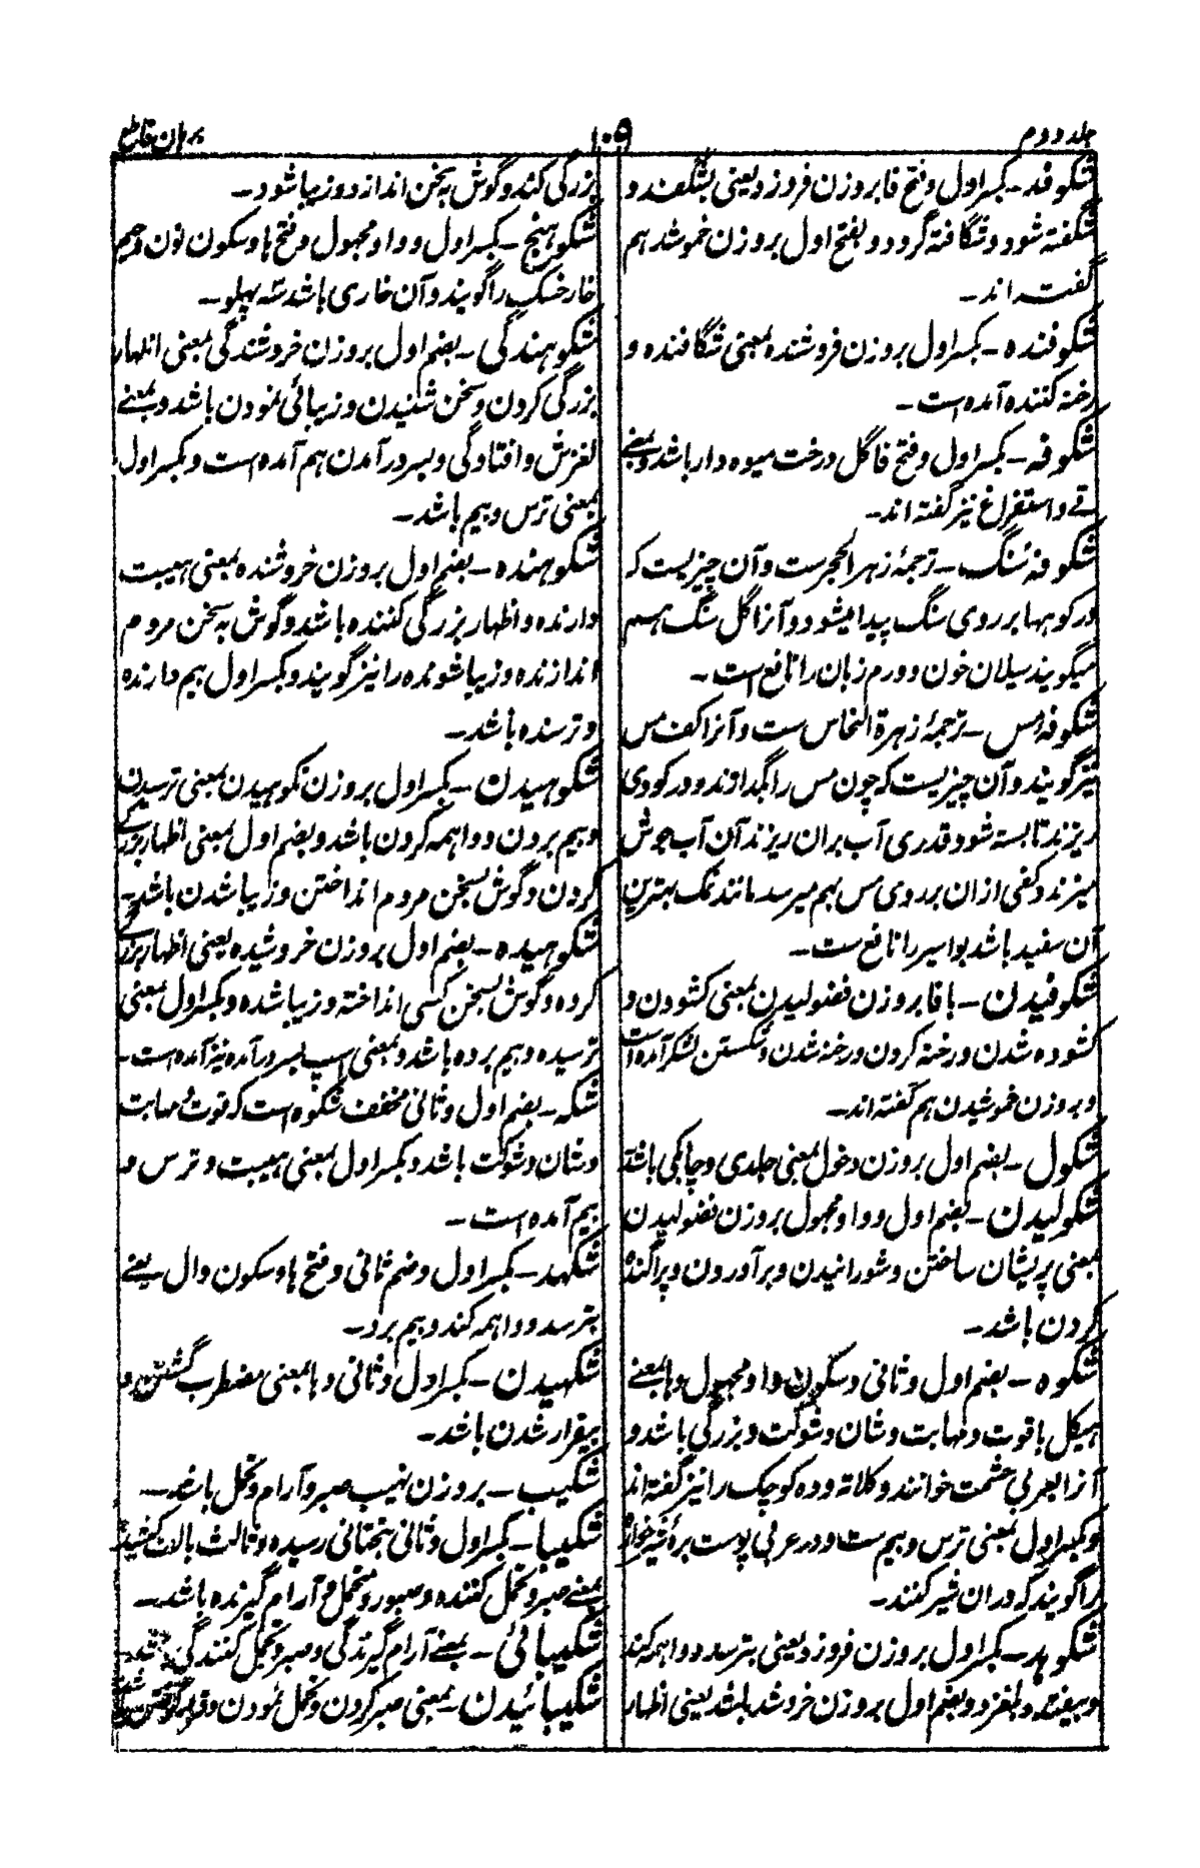 جلد دوم
۱۰۵
برهان قاطع
شکوفد - بکسر اول و فتح فا بر وزن فروزد یعنی بشگفد و
شگفته شود و شگافته گردد و بفتح اول بر وزن خموشد هم
گفته اند -
شکوفنده - بکسر اول بر وزن فروشنده بمعنی شگافنده و
رخنه کننده آمده است -
شکوفه - بکسر اول و فتح فا گل درخت میوه دار باشد و بمعنی
قے و استفراغ نیز گفته اند -
شکوفهٔ سنگ - ترجمهٔ زهر الحجرست و آن چیزیست که
در کوهها بر روی سنگ پیدا میشود و آنرا گل سنگ هم
میگویند سیلان خون و ورم زبان را نافع است -
شکوفهٔ مس - ترجمهٔ زهرة النحاس ست و آنرا کف مس
نیز گویند و آن چیزیست که چون مس را بگدازند و در گودی
ریزند تا بسته شود قدری آب بران ریزند آن آب بجوش
میزند و کفی ازان بر روی مس بهم میرسد مانند نمک بهترین
آن سفید باشد بواسیر را نافع ست -
شکوفیدن - با فا بر وزن فضولیدن بمعنی کشودن و
کشوده شدن و رخنه کردن و رخنه شدن و شکستن لشکر آمده است
و بر وزن خموشیدن هم گفته اند -
شکول - بضم اول بر وزن دخول بمعنی جلدی و چابکی باشد
شکولیدن - بضم اول و واو مجهول بر وزن فضولیدن
بمعنی پریشان ساختن و شورانیدن و برآوردن و پراگنده
کردن باشد -
شکوه - بضم اول و ثانی و سکون واو مجهول و ها بمعنے
هیکل باقوت و مهابت و شان و شوکت و بزرگی باشد و
آنرا بعربی حشمت خوانند و کلاته و ده کوچک را نیز گفته اند
و بکسر اول بمعنی ترس و بیم ست و در عربی پوست برهٔ شیرخواره
را گویند که دران شیر کنند -
شکوهد - بکسر اول بر وزن فروزد یعنی بترسد و واهمه کند
و بیفتد و بلغزد و بضم اول بر وزن خروشد باشد یعنی اظهار
بزرگی کند و گوش به سخن اندازد و زیبا شود -
شکوهنج - بکسر اول و واو مجهول و فتح ها و سکون نون و جیم
خار خسک را گویند و آن خاری باشد سه پهلو -
شکوهندگی - بضم اول بر وزن خروشندگی بمعنی اظهار
بزرگی کردن و سخن شنیدن و زیبائی نمودن باشد و بمعنے
لغزش و افتادگی و بسر درآمدن هم آمده است و بکسر اول
بمعنی ترس و بیم باشد -
شکوهنده - بضم اول بر وزن خروشنده بمعنی هیبت
دارنده و اظهار بزرگی کننده باشد و گوش به سخن مردم
اندازنده و زیبا شونده را نیز گویند و بکسر اول بیم دارنده
و ترسنده باشد -
شکوهیدن - بکسر اول بر وزن نکوهیدن بمعنی ترسیدن
و بیم بردن و واهمه کردن باشد و بضم اول بمعنی اظهار بزرگے
کردن و گوش بسخن مردم انداختن و زیبا شدن باشد -
شکوهیده - بضم اول بر وزن خروشیده یعنی اظهار بزرگے
کرده و گوش بسخن کسی انداخته و زیبا شده و بکسر اول بمعنی
ترسیده و بیم برده باشد و بمعنی اسپ بسر درآمده نیز آمده است -
شکه - بضم اول و ثانی مخفف شکوه است که قوت و مهابت
و شان و شوکت باشد و بکسر اول بمعنی هیبت و ترس و
بیم آمده است -
شکهد - بکسر اول و ضم ثانی و فتح ها و سکون دال یعنے
بترسد و واهمه کند و بیم برد -
شکهیدن - بکسر اول و ثانی و ها بمعنی مضطرب گشتن و
بیقرار شدن باشد -
شکیب - بر وزن نهیب صبر و آرام و تحمل باشد -
شکیبا - بکسر اول و ثانی بتحتانی رسیده و ثالث بالف کشیده
بمعنے صبر و تحمل کننده و صبور و متحمل و آرام گیرنده باشد -
شکیبائی - بمعنے آرام گیرندگی و صبر و تحمل کنندگی باشد -
شکیبائیدن - بمعنی صبر کردن و تحمل نمودن و قرار گرفتن باشد